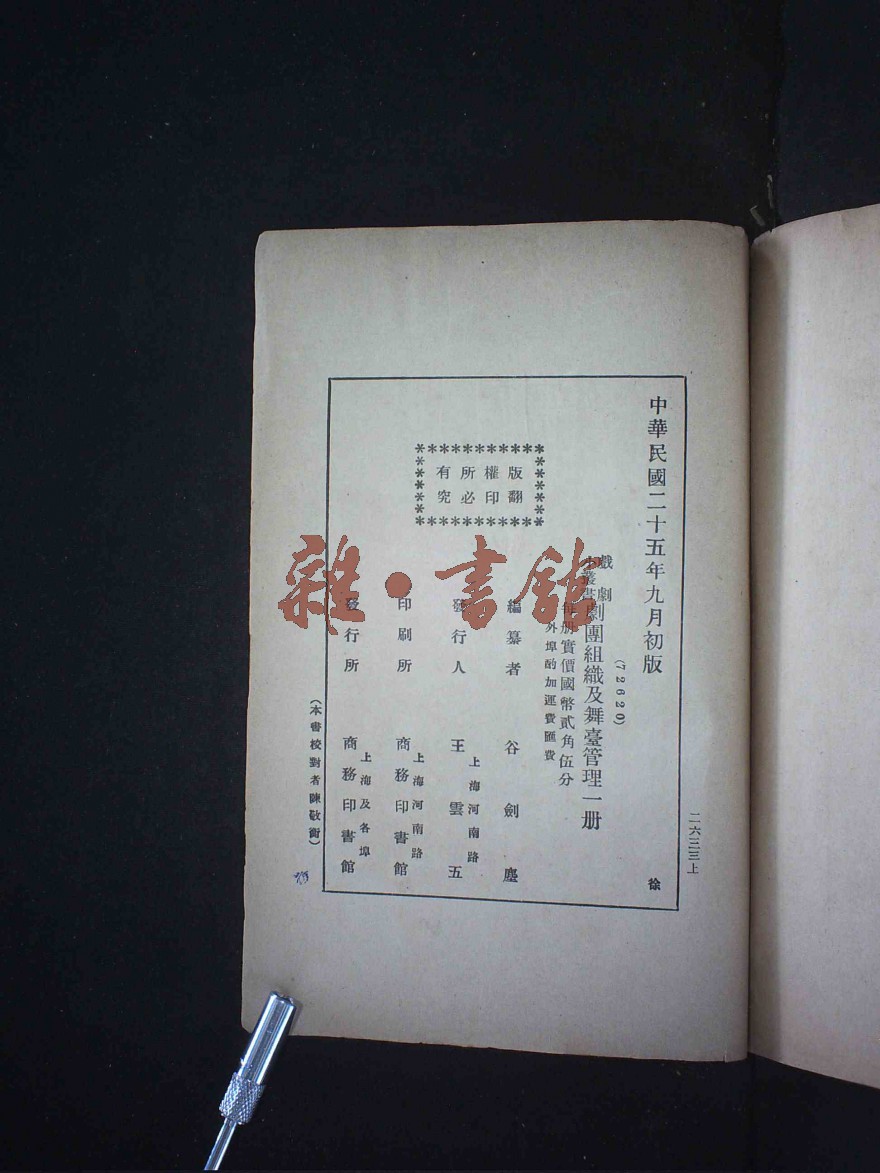 二六三三上
中華民國二十五年九月初版
徐
(72620)
戲劇小叢書 劇團組織及舞臺管理一册
每册實價國幣貳角伍分
外埠酌加運費匯費
編纂者 谷劍塵
上海河南路
發行人 王雲五
上海河南路
印刷所 商務印書館
上海及各埠
發行所 商務印書館
版權所有
翻印必究
(本書校對者陳敬衡)
雜·書館